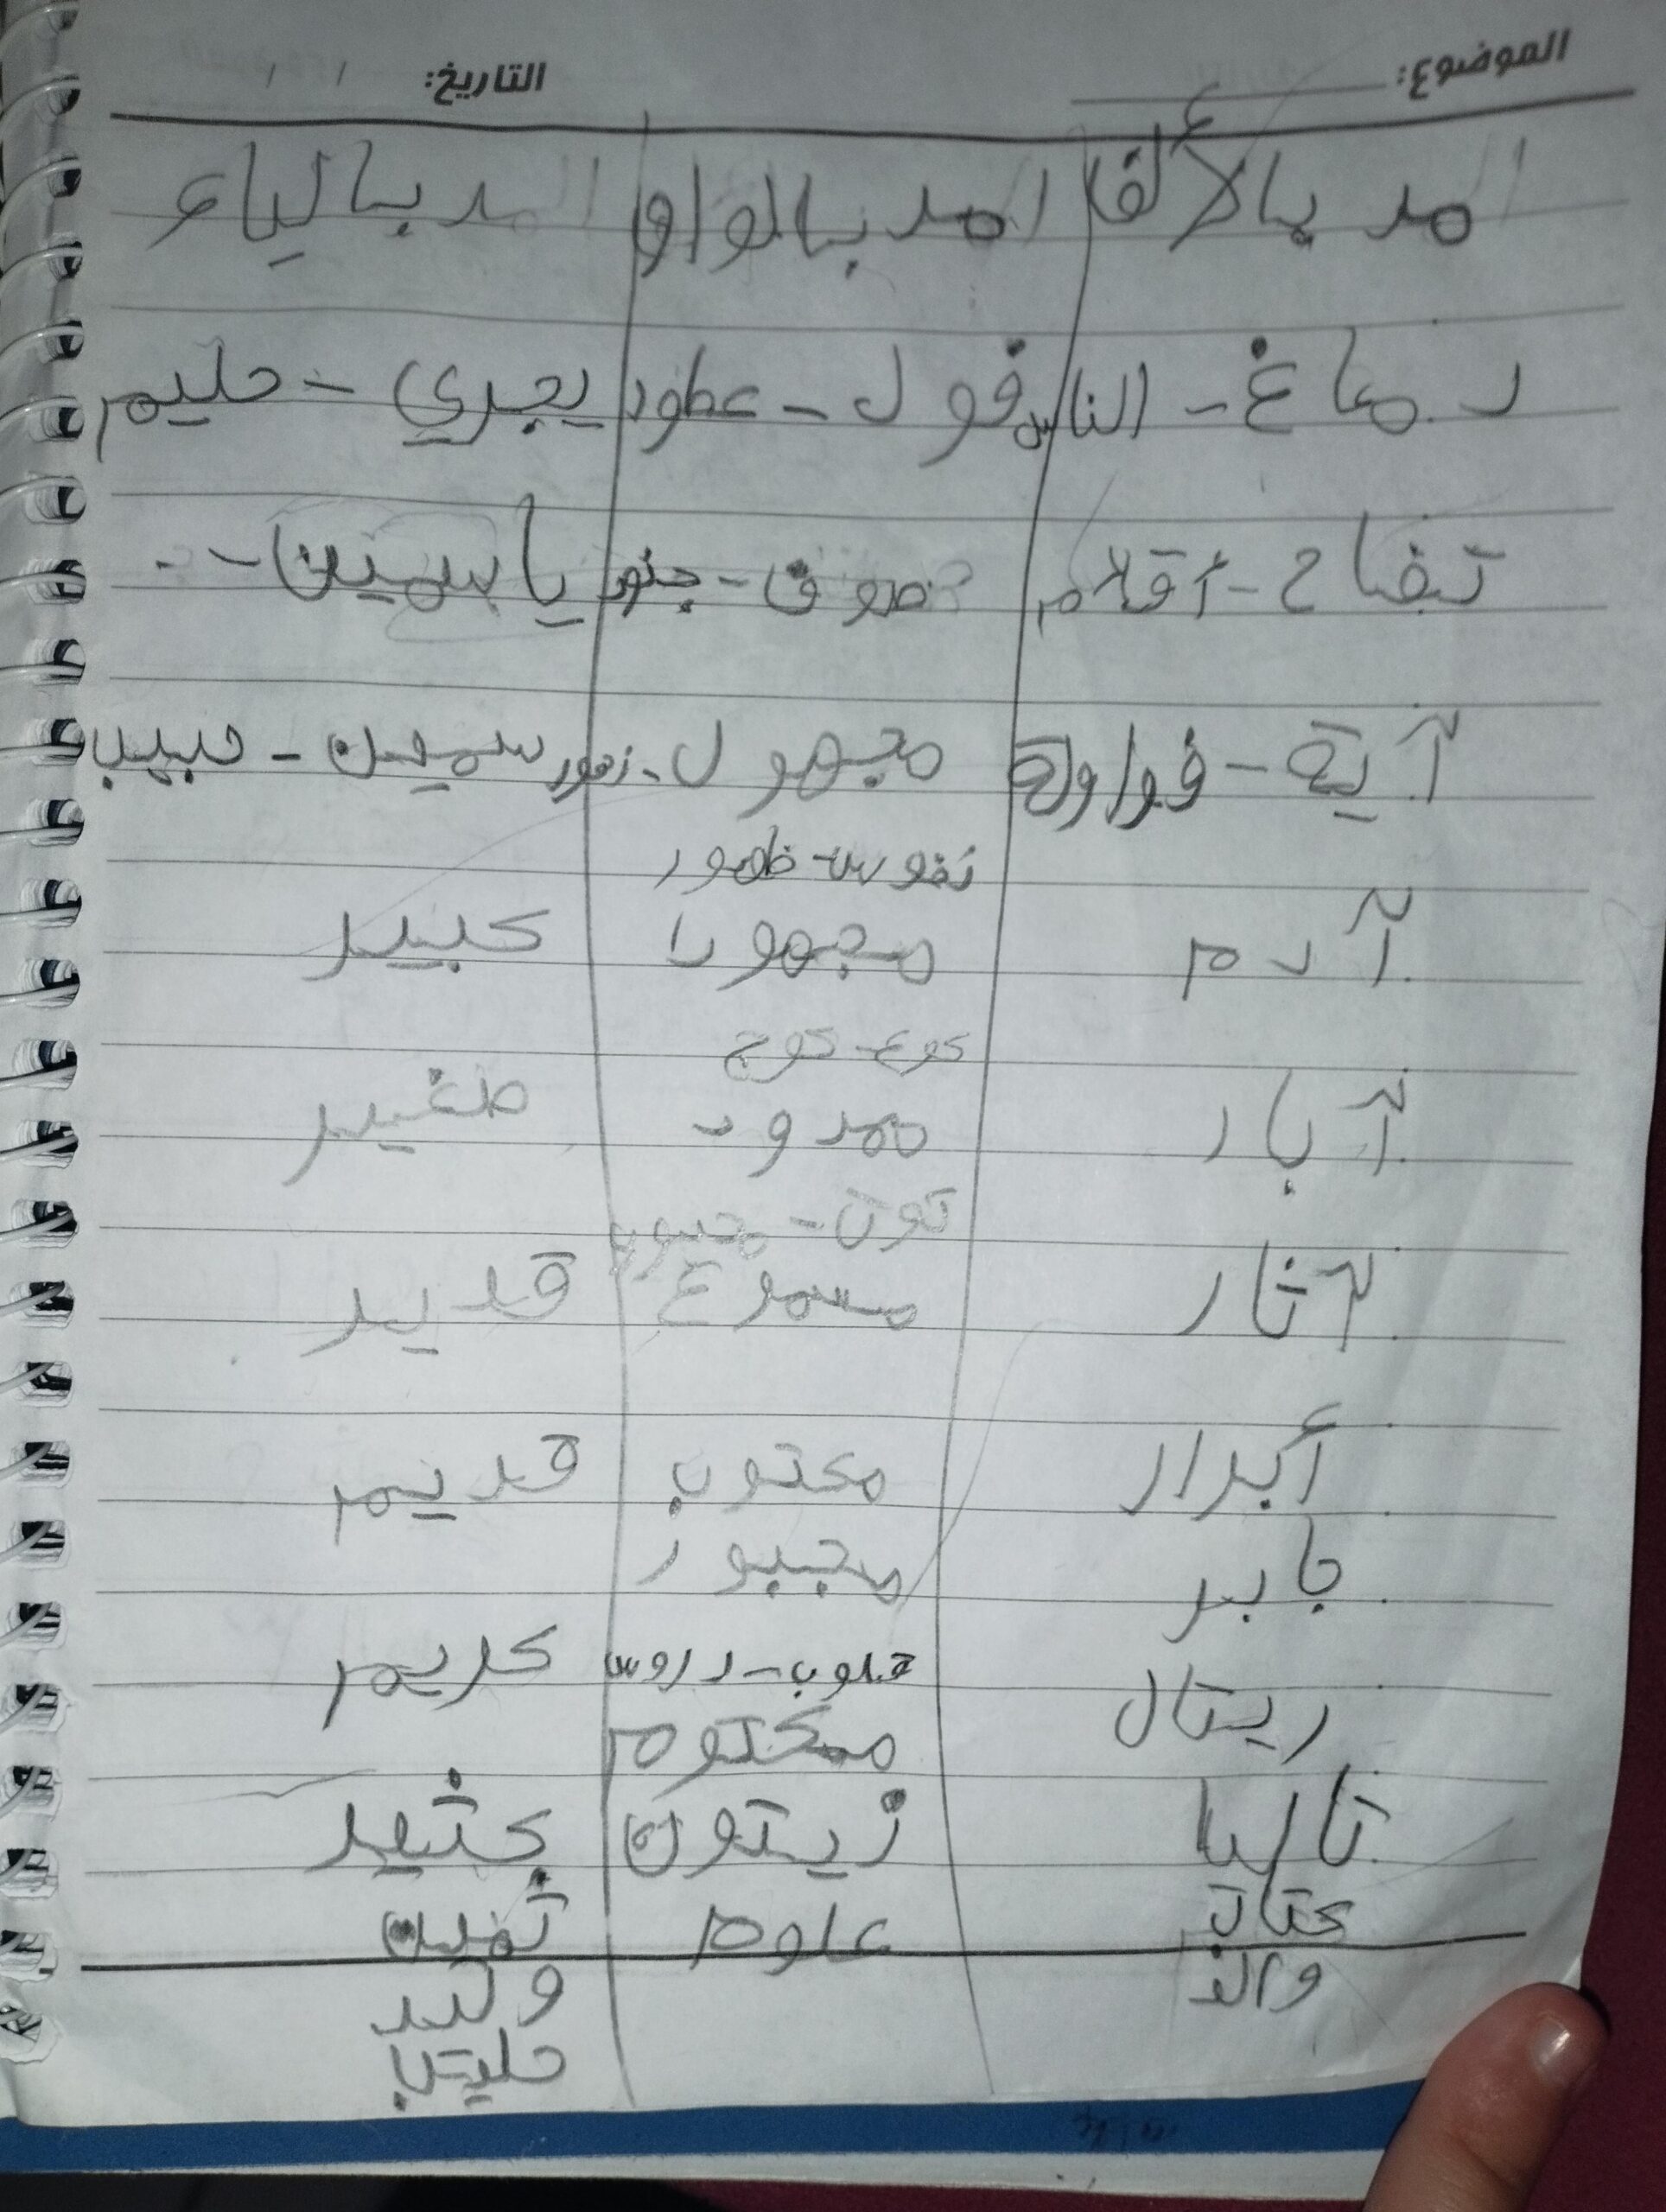 الموضوع: التاريخ: / /
المد بالألف المد بالواو المد بالياء
دماغ - الناس فول - عطور يجري - حليم
تفاح - أقلام صوف - جنود ياسمين -
آية - فراولة مجهول - زهور سمين - حبيب
نفوس - ظهور
آدم مجهود كبير
كوع - كوخ
آبار ممدود صغير
توت - محبوب
آثار مسموع قدير
أبرار مكتوب قديم
جابر مجبور
قلوب - دروس كريم
ريتال مكتوم
تاليا زيتون كثير
كتاب علوم ثمين
والد وليد
حليب